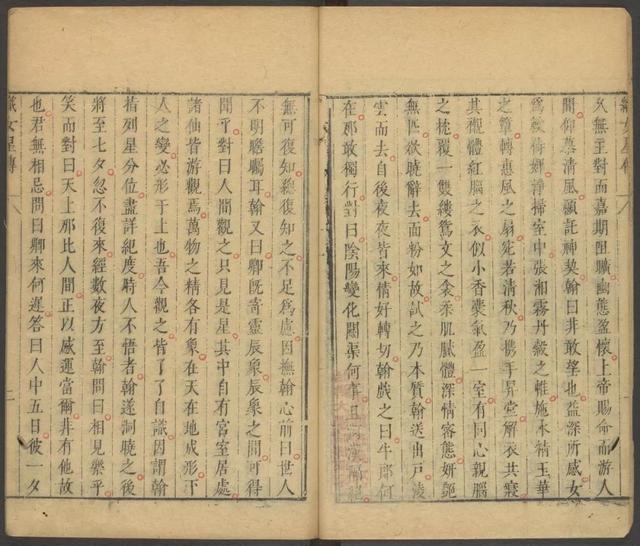 織女星傳
久無主對而嘉期阻曠幽態盈懷上帝賜命而游人
間仰慕清風願託神契翰曰非敢望也益深所感女
為敕侍婢淨掃室中張湘霧丹縠之帷施水精玉華
之簟轉惠風之扇宛若清秋乃攜手昇堂解衣共寢
其襯體紅腦之衣似小香囊氣盈一室有同心親腦
之枕覆一雙縷鴛文之衾柔肌膩體深情密態妍艷
無匹欲曉辭去面粉如故試之乃本質翰送出戶凌
雲而去自後夜夜皆來情好轉切翰戲之曰牛郎何
在那敢獨行對曰陰陽變化關渠何事且河漢隔絕
無可復知縱復知之不足為慮因撫翰心前曰世人
不明瞻矚耳翰又曰卿既寄靈辰象辰象之間可得
聞乎對曰人間觀之只見是星其中自有宮室居處
諸仙皆游觀焉萬物之精各有象在天在地成形下
人之變必形于上也吾今觀之皆了了自識因謂翰
指列星分位盡詳紀度時人不悟者翰遂洞曉之後
將至七夕忽不復來經數夜方至翰問曰相見樂乎
笑而對曰天上那比人間正以感運當爾非有他故
也君無相忌問曰卿來何遲答曰人中五日彼一夕
織女星傳 二